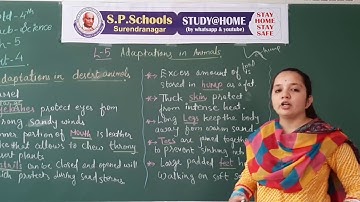 S.P.Schools
Surendranagar
STUDY@HOME
(by whatsapp & youtube)
STAY
HOME
STAY
SAFE
Std-4th
Sub-Science
Ch-5
Part-4
L-5 Adaptations in Animals
hump
Adaptations in desert animals
Camel
Eyelashes protect eyes from
strong sandy winds
Inner portion of Mouth is leather
like that allows to chew thorny
desert plants
Nostrils can be closed and opened will
which protects during sand storms
Excess amount of food is
stored in hump as a fat.
Thick skin protect it
from intense heat.
Long Legs keep the body
away from warm sand.
Toes are joined together
to prevent sinking
Large padded feet
walking on soft